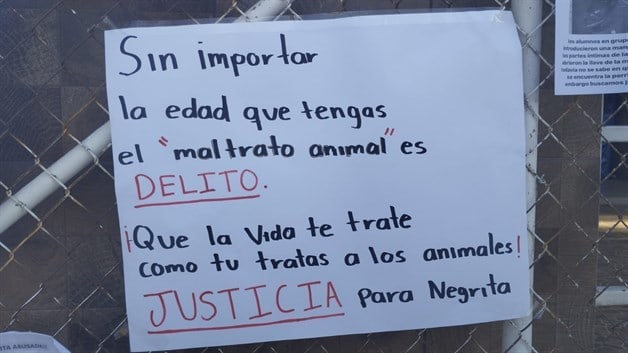 Sin importar
la edad que tengas
el "maltrato animal" es
DELITO.
¡Que la Vida te trate
como tu tratas a los animales!
JUSTICIA para Negrita
los alumnos en grup
introdujeron una man
as partes íntimas de la
abrieron la llave de la m
todavía no se sabe en q
se encuentra la perri
embargo buscamos j
TA ABUSADE